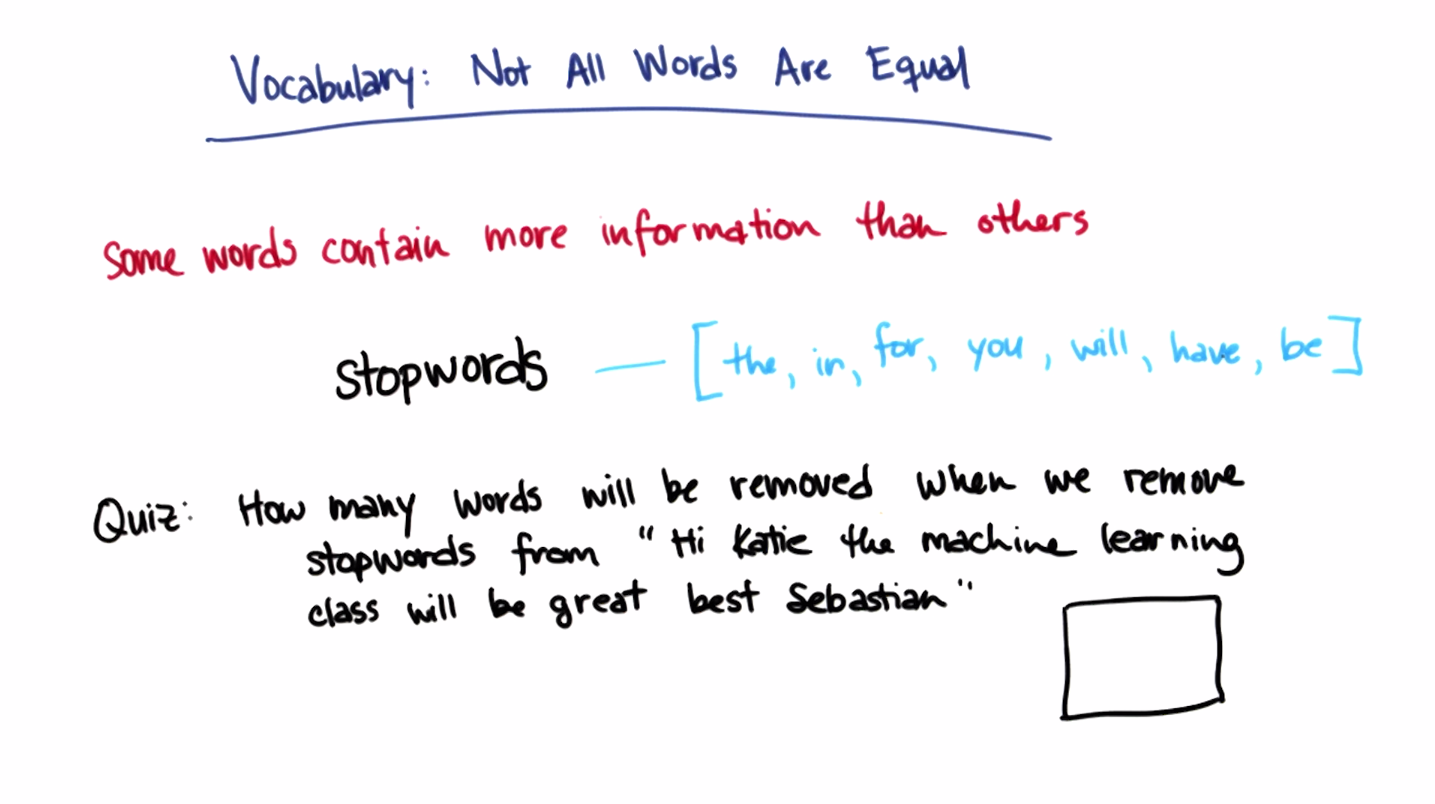 Vocabulary: Not All Words Are Equal
Some words contain more information than others
stopwords — [the, in, for, you, will, have, be]
Quiz: How many words will be removed when we remove
stopwords from "Hi Katie the machine learning
class will be great best Sebastian"